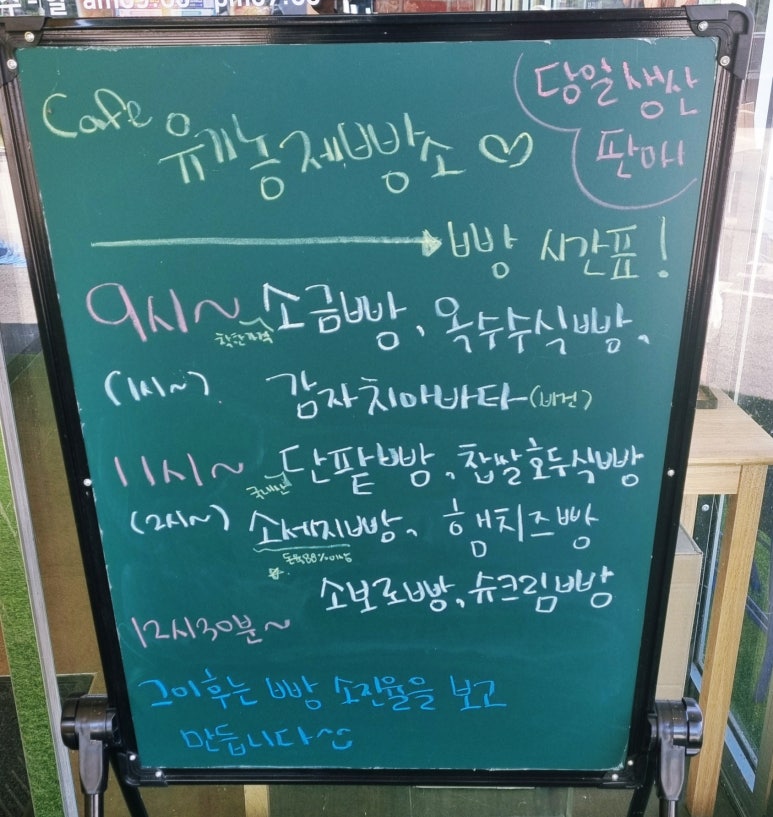 Cafe 유기농제빵소♡
당일생산
판매
→ 빵 시간표!
9시~ 소금빵, 옥수수식빵,
착한가격
(1시~) 감자치아바타(비건)
11시~ 단팥빵, 찹쌀호두식빵
국내산
(2시~) 소세지빵, 햄치즈빵
돈육88%이상
소보로빵, 슈크림빵
12시30분~
그이후는 빵 소진율을 보고
만듭니다